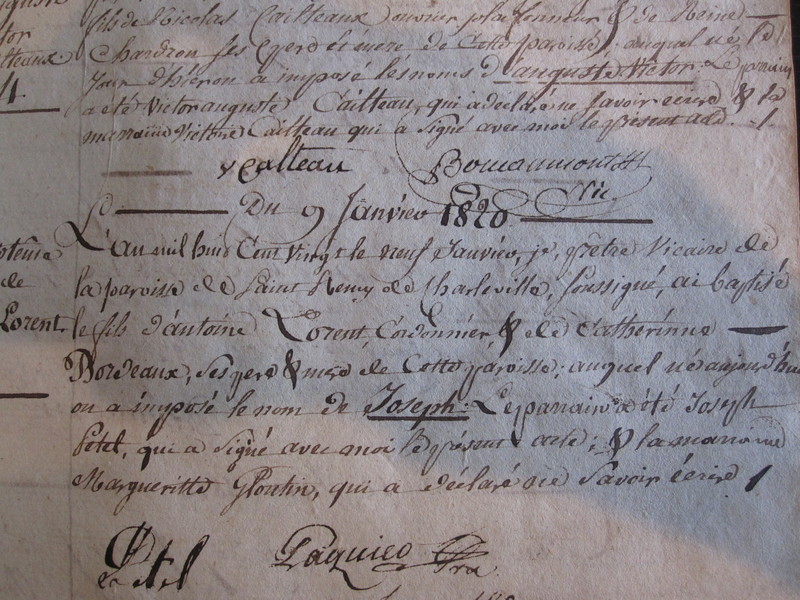 fils de Nicolas Cailteaux ouvrier plafonneur & de Reine
Chardron ses pere et mere de Cette paroisse, auquel né
jour d'hier on a imposé les noms d'auguste Victor. Le parain
4
a été Victor auguste Cailteau, qui a declaré ne savoir ecrire & la
maraine Victoire Cailteau qui a signé avec moi le présent acte.
v cailteau
Vic
Du 9 Janvier 1820
L'an mil huit Cent Vingt le neuf Janvier, je, prêtre Vicaire de
la paroisse de Saint Remy de Charleville, soussigné, ai baptisé
de
Lorent
le fils d'antoine Lorent, Cordonnier, & de Catherinne
Bordeaux, ses pere & mere de Cette paroisse; auquel né aujourd'hui
on a imposé le nom de Joseph. Le parain a été Joseph
Petel, qui a signé avec moi le présent acte; & la maraine
Margueritte, qui a déclaré ne Savoir écrire
Petel